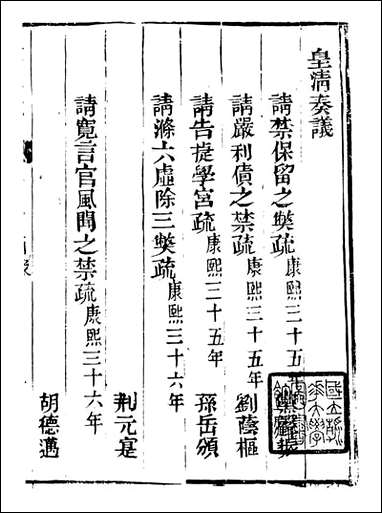 皇清奏議
請禁保留之獘疏康熙三十五年
請嚴利債之禁疏康熙三十五年 劉蔭樞
請告提學宮疏康熙三十五年 孫岳頒
請滌六虛除三獘疏康熙三十六年 荆元寔
請寬言官風聞之禁疏康熙三十六年 胡德邁